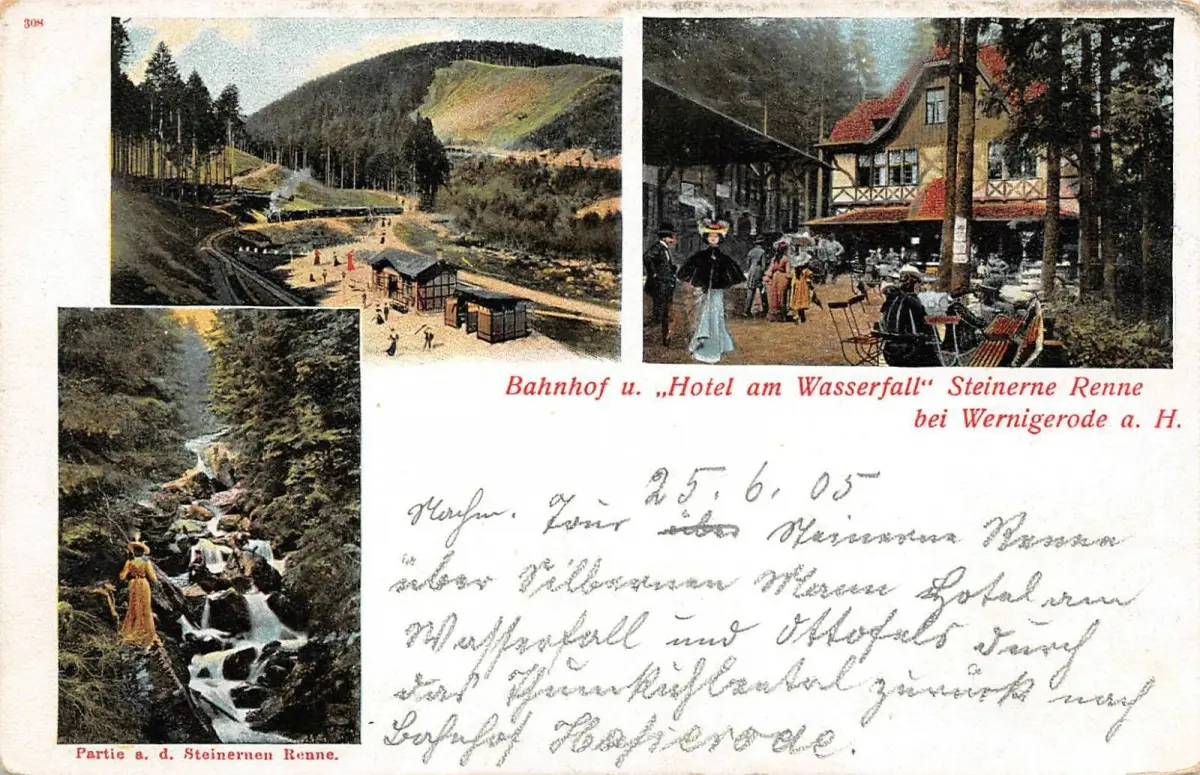 308
Bahnhof u. „Hotel am Wasserfall“ Steinerne Renne
bei Wernigerode a. H.
25. 6. 05
Nachm. Tour über Steinerne Renne
über Silbernen Mann Hotel am
Wasserfall und Ottofels durch
das Thumkühlental zurück nach
Bahnhof Hasserode.
Partie a. d. Steinernen Renne.